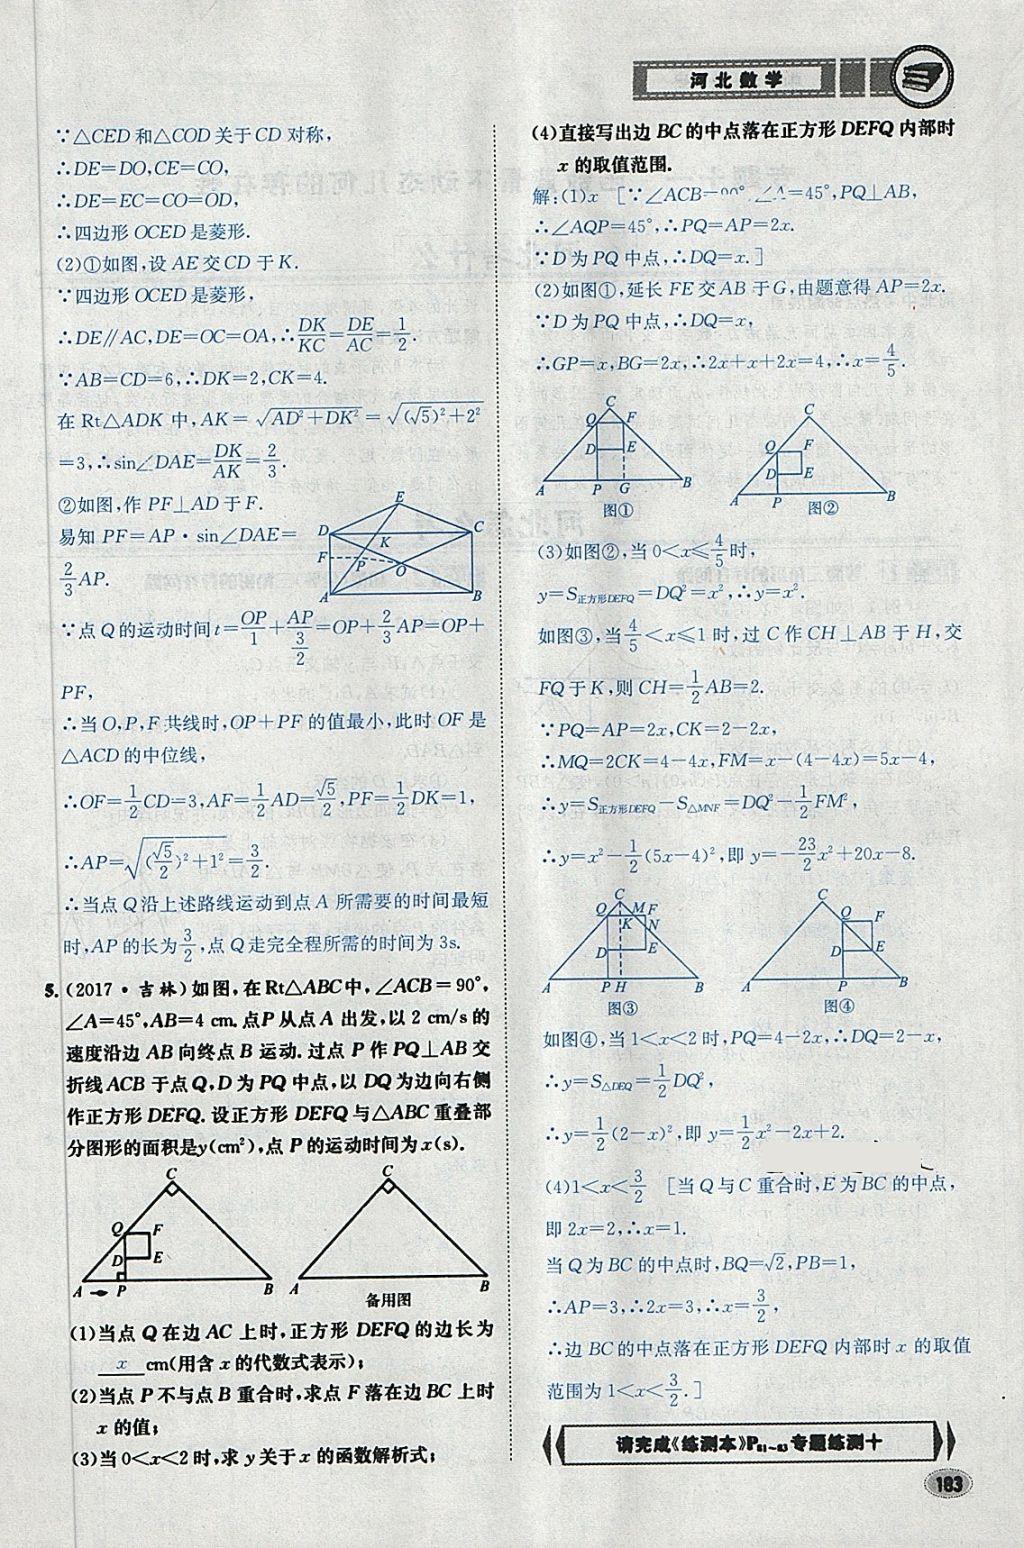 河北数学
∵△CED和△COD关于CD对称,
∴DE=DO,CE=CO,
∴DE=EC=CO=OD,
∴四边形OCED是菱形.
(2)①如图,设AE交CD于K.
∵四边形OCED是菱形,
∴DE∥AC,DE=OC=OA,∴DK/KC=DE/AC=1/2.
∵AB=CD=6,∴DK=2,CK=4.
在Rt△ADK中,AK=√(AD²+DK²)=√((√5)²+2²)
=3,∴sin∠DAE=DK/AK=2/3.
②如图,作PF⊥AD于F.
易知PF=AP·sin∠DAE=
2/3AP.
E
D
K
C
F
P
O
A
B
∵点Q的运动时间t=OP/1+AP/(3/2)=OP+2/3AP=OP+
PF,
∴当O,P,F共线时,OP+PF的值最小,此时OF是
△ACD的中位线,
∴OF=1/2CD=3,AF=1/2AD=√5/2,PF=1/2DK=1,
∴AP=√((√5/2)²+1²)=3/2.
∴当点Q沿上述路线运动到点A所需要的时间最短
时,AP的长为3/2,点Q走完全程所需的时间为3s.
5.(2017·吉林)如图,在Rt△ABC中,∠ACB=90°,
∠A=45°,AB=4 cm.点P从点A出发,以2 cm/s的
速度沿边AB向终点B运动.过点P作PQ⊥AB交
折线ACB于点Q,D为PQ中点,以DQ为边向右侧
作正方形DEFQ.设正方形DEFQ与△ABC重叠部
分图形的面积是y(cm²),点P的运动时间为x(s).
C
Q F
D E
A P B
C
A B
备用图
(1)当点Q在边AC上时,正方形DEFQ的边长为
x cm(用含x的代数式表示);
(2)当点P不与点B重合时,求点F落在边BC上时
x的值;
(3)当0<x<2时,求y关于x的函数解析式;
(4)直接写出边BC的中点落在正方形DEFQ内部时
x的取值范围.
解:(1)x [∵∠ACB=90°,∠A=45°,PQ⊥AB,
∴∠AQP=45°,∴PQ=AP=2x.
∵D为PQ中点,∴DQ=x.]
(2)如图①,延长FE交AB于G,由题意得AP=2x.
∵D为PQ中点,∴DQ=x,
∴GP=x,BG=2x,∴2x+x+2x=4,∴x=4/5.
C
Q F
D E
A P G B
图①
C
Q F
D E
A P B
图②
(3)如图②,当0<x≤4/5时,
y=S正方形DEFQ=DQ²=x²,∴y=x².
如图③,当4/5<x≤1时,过C作CH⊥AB于H,交
FQ于K,则CH=1/2AB=2.
∵PQ=AP=2x,CK=2-2x,
∴MQ=2CK=4-4x,FM=x-(4-4x)=5x-4,
∴y=S正方形DEFQ-S△MNF=DQ²-1/2FM²,
∴y=x²-1/2(5x-4)²,即y=-23/2x²+20x-8.
C
Q M F
K N
D E
A P H B
图③
C
Q F
D E
A P B
图④
如图④,当1<x<2时,PQ=4-2x,∴DQ=2-x,
∴y=S△DEQ=1/2DQ²,
∴y=1/2(2-x)²,即y=1/2x²-2x+2.
(4)1<x<3/2 [当Q与C重合时,E为BC的中点,
即2x=2,∴x=1.
当Q为BC的中点时,BQ=√2,PB=1,
∴AP=3,∴2x=3,∴x=3/2,
∴边BC的中点落在正方形DEFQ内部时x的取值
范围为1<x<3/2.]
请完成《练测本》P61~63专题练测十
183